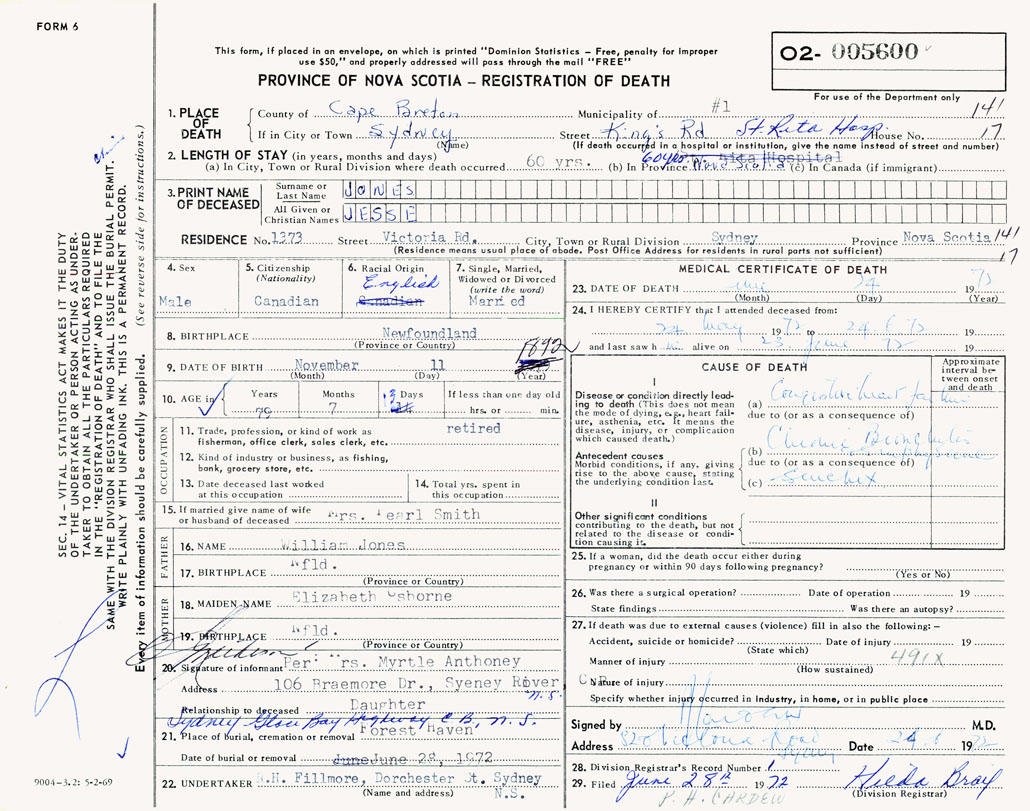 FORM 6
This form, if placed in an envelope, on which is printed "Dominion Statistics – Free, penalty for improper
use $50," and properly addressed will pass through the mail "FREE"
PROVINCE OF NOVA SCOTIA – REGISTRATION OF DEATH
O2- 005600
For use of the Department only
SEC. 14 – VITAL STATISTICS ACT MAKES IT THE DUTY
OF THE UNDERTAKER OR PERSON ACTING AS UNDER-
TAKER TO OBTAIN ALL THE PARTICULARS REQUIRED
IN THE "REGISTRATION OF DEATH" AND TO FILE THE
SAME WITH THE DIVISION REGISTRAR WHO SHALL ISSUE THE BURIAL PERMIT.
WRITE PLAINLY WITH UNFADING INK. THIS IS A PERMANENT RECORD.
Every item of information should be carefully supplied. (See reverse side for instructions.)
1. PLACE OF DEATH
County of Cape Breton Municipality of #1 141
If in City or Town Sydney Street King's Rd St. Rita Hosp. House No. 17
(Name) (If death occurred in a hospital or institution, give the name instead of street and number)
2. LENGTH OF STAY (in years, months and days)
(a) In City, Town or Rural Division where death occurred 60 yrs. (b) In Province 60 yrs. Nova Scotia Rita Hospital (c) In Canada (if immigrant)
3. PRINT NAME OF DECEASED
Surname or Last Name JONES
All Given or Christian Names JESSE
RESIDENCE No. 1373 Street Victoria Rd. City, Town or Rural Division Sydney Province Nova Scotia 141
(Residence means usual place of abode. Post Office Address for residents in rural parts not sufficient) 17
4. Sex Male
5. Citizenship (Nationality) Canadian
6. Racial Origin English Canadian
7. Single, Married, Widowed or Divorced (write the word) Married
8. BIRTHPLACE Newfoundland
(Province or Country)
9. DATE OF BIRTH November 11 1892
(Month) (Day) (Year)
10. AGE in Years 79 Months 7 Days 13 If less than one day old hrs. or min.
OCCUPATION
11. Trade, profession, or kind of work as fisherman, office clerk, sales clerk, etc. retired
12. Kind of industry or business, as fishing, bank, grocery store, etc.
13. Date deceased last worked at this occupation
14. Total yrs. spent in this occupation
15. If married give name of wife or husband of deceased Mrs. Pearl Smith
FATHER
16. NAME William Jones
17. BIRTHPLACE Nfld.
(Province or Country)
MOTHER
18. MAIDEN NAME Elizabeth Osborne
19. BIRTHPLACE Nfld.
(Province or Country)
20. Signature of informant Per: Mrs. Myrtle Anthoney
Address 106 Braemore Dr., Syeney River, N.S.
Relationship to deceased Daughter
Sydney Glace Bay Highway C.B., N.S.
21. Place of burial, cremation or removal Forest Haven
Date of burial or removal June June 28, 1972
22. UNDERTAKER R.H. Fillmore, Dorchester St. Sydney
(Name and address) N.S.
9004-3.2: 5-2-69
MEDICAL CERTIFICATE OF DEATH
23. DATE OF DEATH 24 19
(Month) (Day) (Year)
24. I HEREBY CERTIFY that I attended deceased from:
May 19 to 24. 6 19
and last saw h alive on 23 June 72 19
CAUSE OF DEATH
Approximate interval between onset and death
I
Disease or condition directly leading to death (This does not mean the mode of dying, e.g., heart failure, asthenia, etc. It means the disease, injury, or complication which caused death.)
(a) Congestive heart failure
due to (or as a consequence of)
Antecedent causes
Morbid conditions, if any, giving rise to the above cause, stating the underlying condition last.
(b) Chronic Bronchitis emphysema
due to (or as a consequence of)
(c)
II
Other significant conditions
contributing to the death, but not related to the disease or condition causing it.
25. If a woman, did the death occur either during pregnancy or within 90 days following pregnancy?
(Yes or No)
26. Was there a surgical operation? Date of operation 19
State findings Was there an autopsy?
27. If death was due to external causes (violence) fill in also the following:–
Accident, suicide or homicide? Date of injury 19
(State which)
Manner of injury 491X
(How sustained)
Nature of injury
Specify whether injury occurred in industry, in home, or in public place
Signed by M.D.
Address 520 Victoria Road Sydney Date 24.6 1972
28. Division Registrar's Record Number
29. Filed June 28th 1972 Hilda Bray
(Division Registrar)
P. H. CARDEW